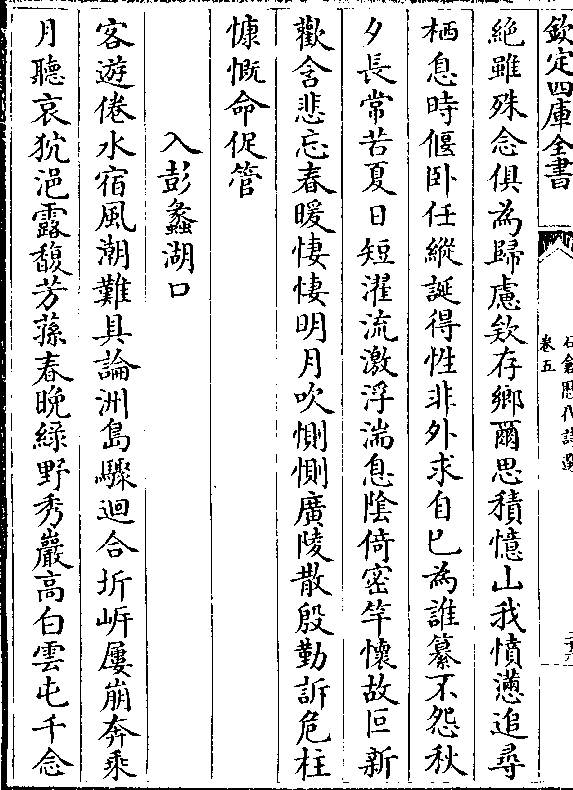 欽定四庫全書
石倉歷代詩選
卷五
絶雖殊念俱為歸慮欵存鄉爾思積憶山我憤懣追尋
栖息時偃卧任縱誕得性非外求自已為誰纂不怨秋
夕長常苦夏日短濯流激浮湍息陰倚密竿懷故叵新
歡含悲忘春暖悽悽明月吹惻惻廣陵散殷勤訴危柱
慷慨命促管
入彭蠡湖口
客遊倦水宿風潮難具論洲島驟迴合圻岸屢崩奔乗
月聽哀狖浥露馥芳蓀春晚綠野秀巖高白雲屯千念